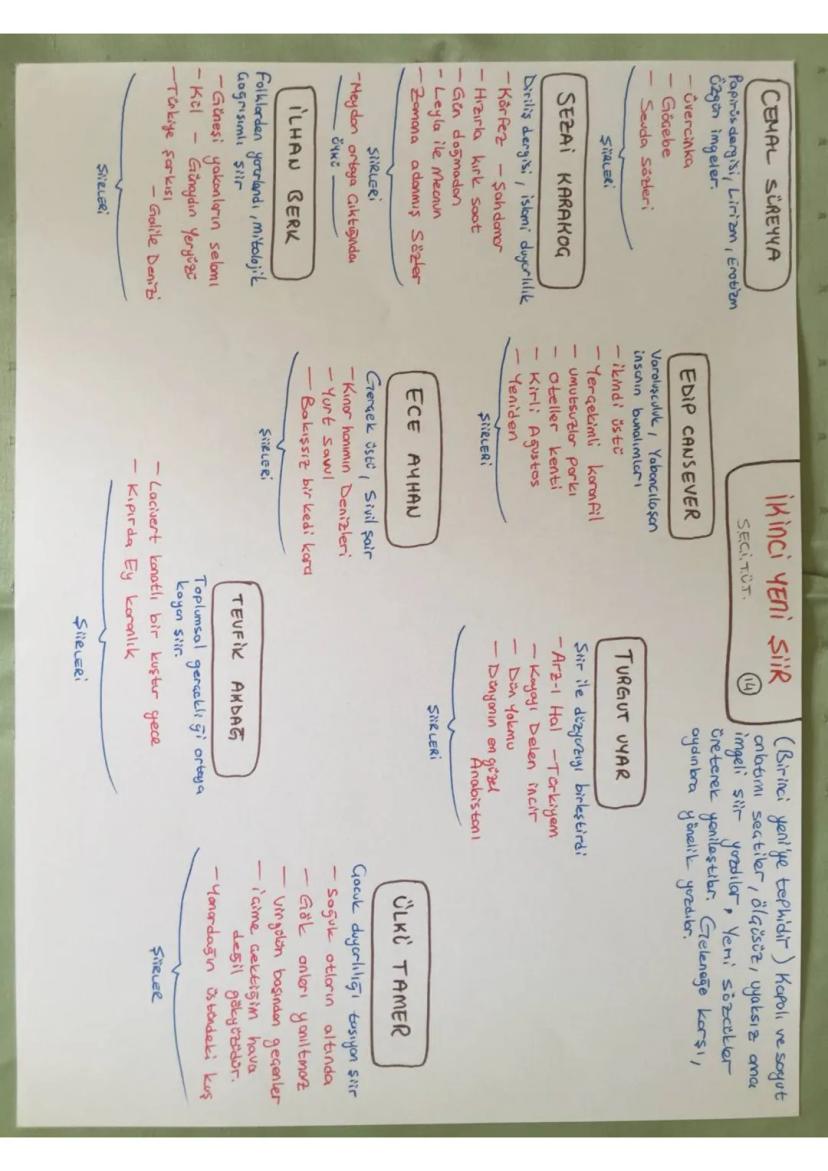 İKİNCİ YENİ ŞİİR
SEÇİ.TÜT.
14
(Birinci yeni'ye tepkidir) Kapalı ve soyut
anlatımı seçtiler, ölçüsüz, uyaksız ama
imgeli şiir yazdılar, Yeni sözcükler
üreterek yenileştiler. Geleneğe karşı,
aydınlara yönelik yazdılar.
CEMAL SÜREYYA
Papirüs dergisi, Lirizm, Erotizm
özgün imgeler.
- Üvercinka
- Göçebe
- Sevda sözleri
ŞİİRLERİ
SEZAİ KARAKOÇ
Diriliş dergisi, islami duyarlılık
- Körfez - Şahdamar
- Hızırla kırk saat
- Gün doğmadan
- Leyla ile Mecnun
- Zamana adanmış Sözler
ŞİİRLERİ
- Meydan ortaya Çıktığında
ÖYKÜ
İLHAN BERK
Folklorden yararlandı, mitolojik
Çağrışımlı şiir
- Güneşi yakanların selamı
- Kül - Günaydın Yeryüzü
- Türkiye şarkısı
- Galile Denizi
ŞİİRLERİ
EDİP CANSEVER
Varoluşçuluk, Yabancılaşan
insanın bunalımları
- ikindi üstü
- Yerçekimli karanfil
- umutsuzlar parkı
- oteller kenti
- Kirli Ağustos
- Yeniden
ŞİİRLERİ
ECE AYHAN
Gerçek üstü, Sivil şair
- Kınar hanımın Denizleri
- Yurt Savul
- Bakışsız bir kedi kara
ŞİİRLERİ
TURGUT UYAR
Şiir ile düzyazıyı birleştirdi
- Arz-ı Hal - Türkiyem
- Kayayı Delen incir
- Dün Yokmu
- Dünyanın en güzel
Arabistanı
ŞİİRLERİ
TEVFİK AKDAĞ
Toplumsal gerçekliği ortaya
koyan şiir.
- Lacivert kanatlı bir kuştur gece
- Kıpırda Ey karanlık
ŞİİRLERİ
ÜLKÜ TAMER
Çocuk duyarlılığı taşıyan şiir
- Soğuk otların altında
- Gök onları yanıltmaz
- Virgülün başından geçenler
- içime çektiğim hava
değil gökyüzüdür.
- Yanardağın üstündeki kuş
ŞİİRLER